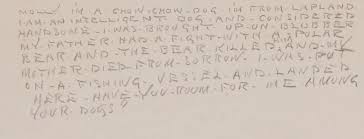 NOW IN A CHOW-CHOW-DOG IM FROM LAPLAND
I-AM-AN-INTELLIGENT DOG AND-CONSIDERED
HANDSOME-I-WAS-BROUGHT UP-ON-BLUBBER
MY-FATHER-HAD-A-FIGHT-WITH-A-POLAR
BEAR AND-THE-BEAR-KILLED-AND-MY
MOTHER-DIED-FROM-SORROW-I-WAS-PUT
ON-A-FISHING-VESSEL-AND-LANDED
HERE-HAVE-YOU-ROOM-FOR-ME AMONG
YOUR-DOGS